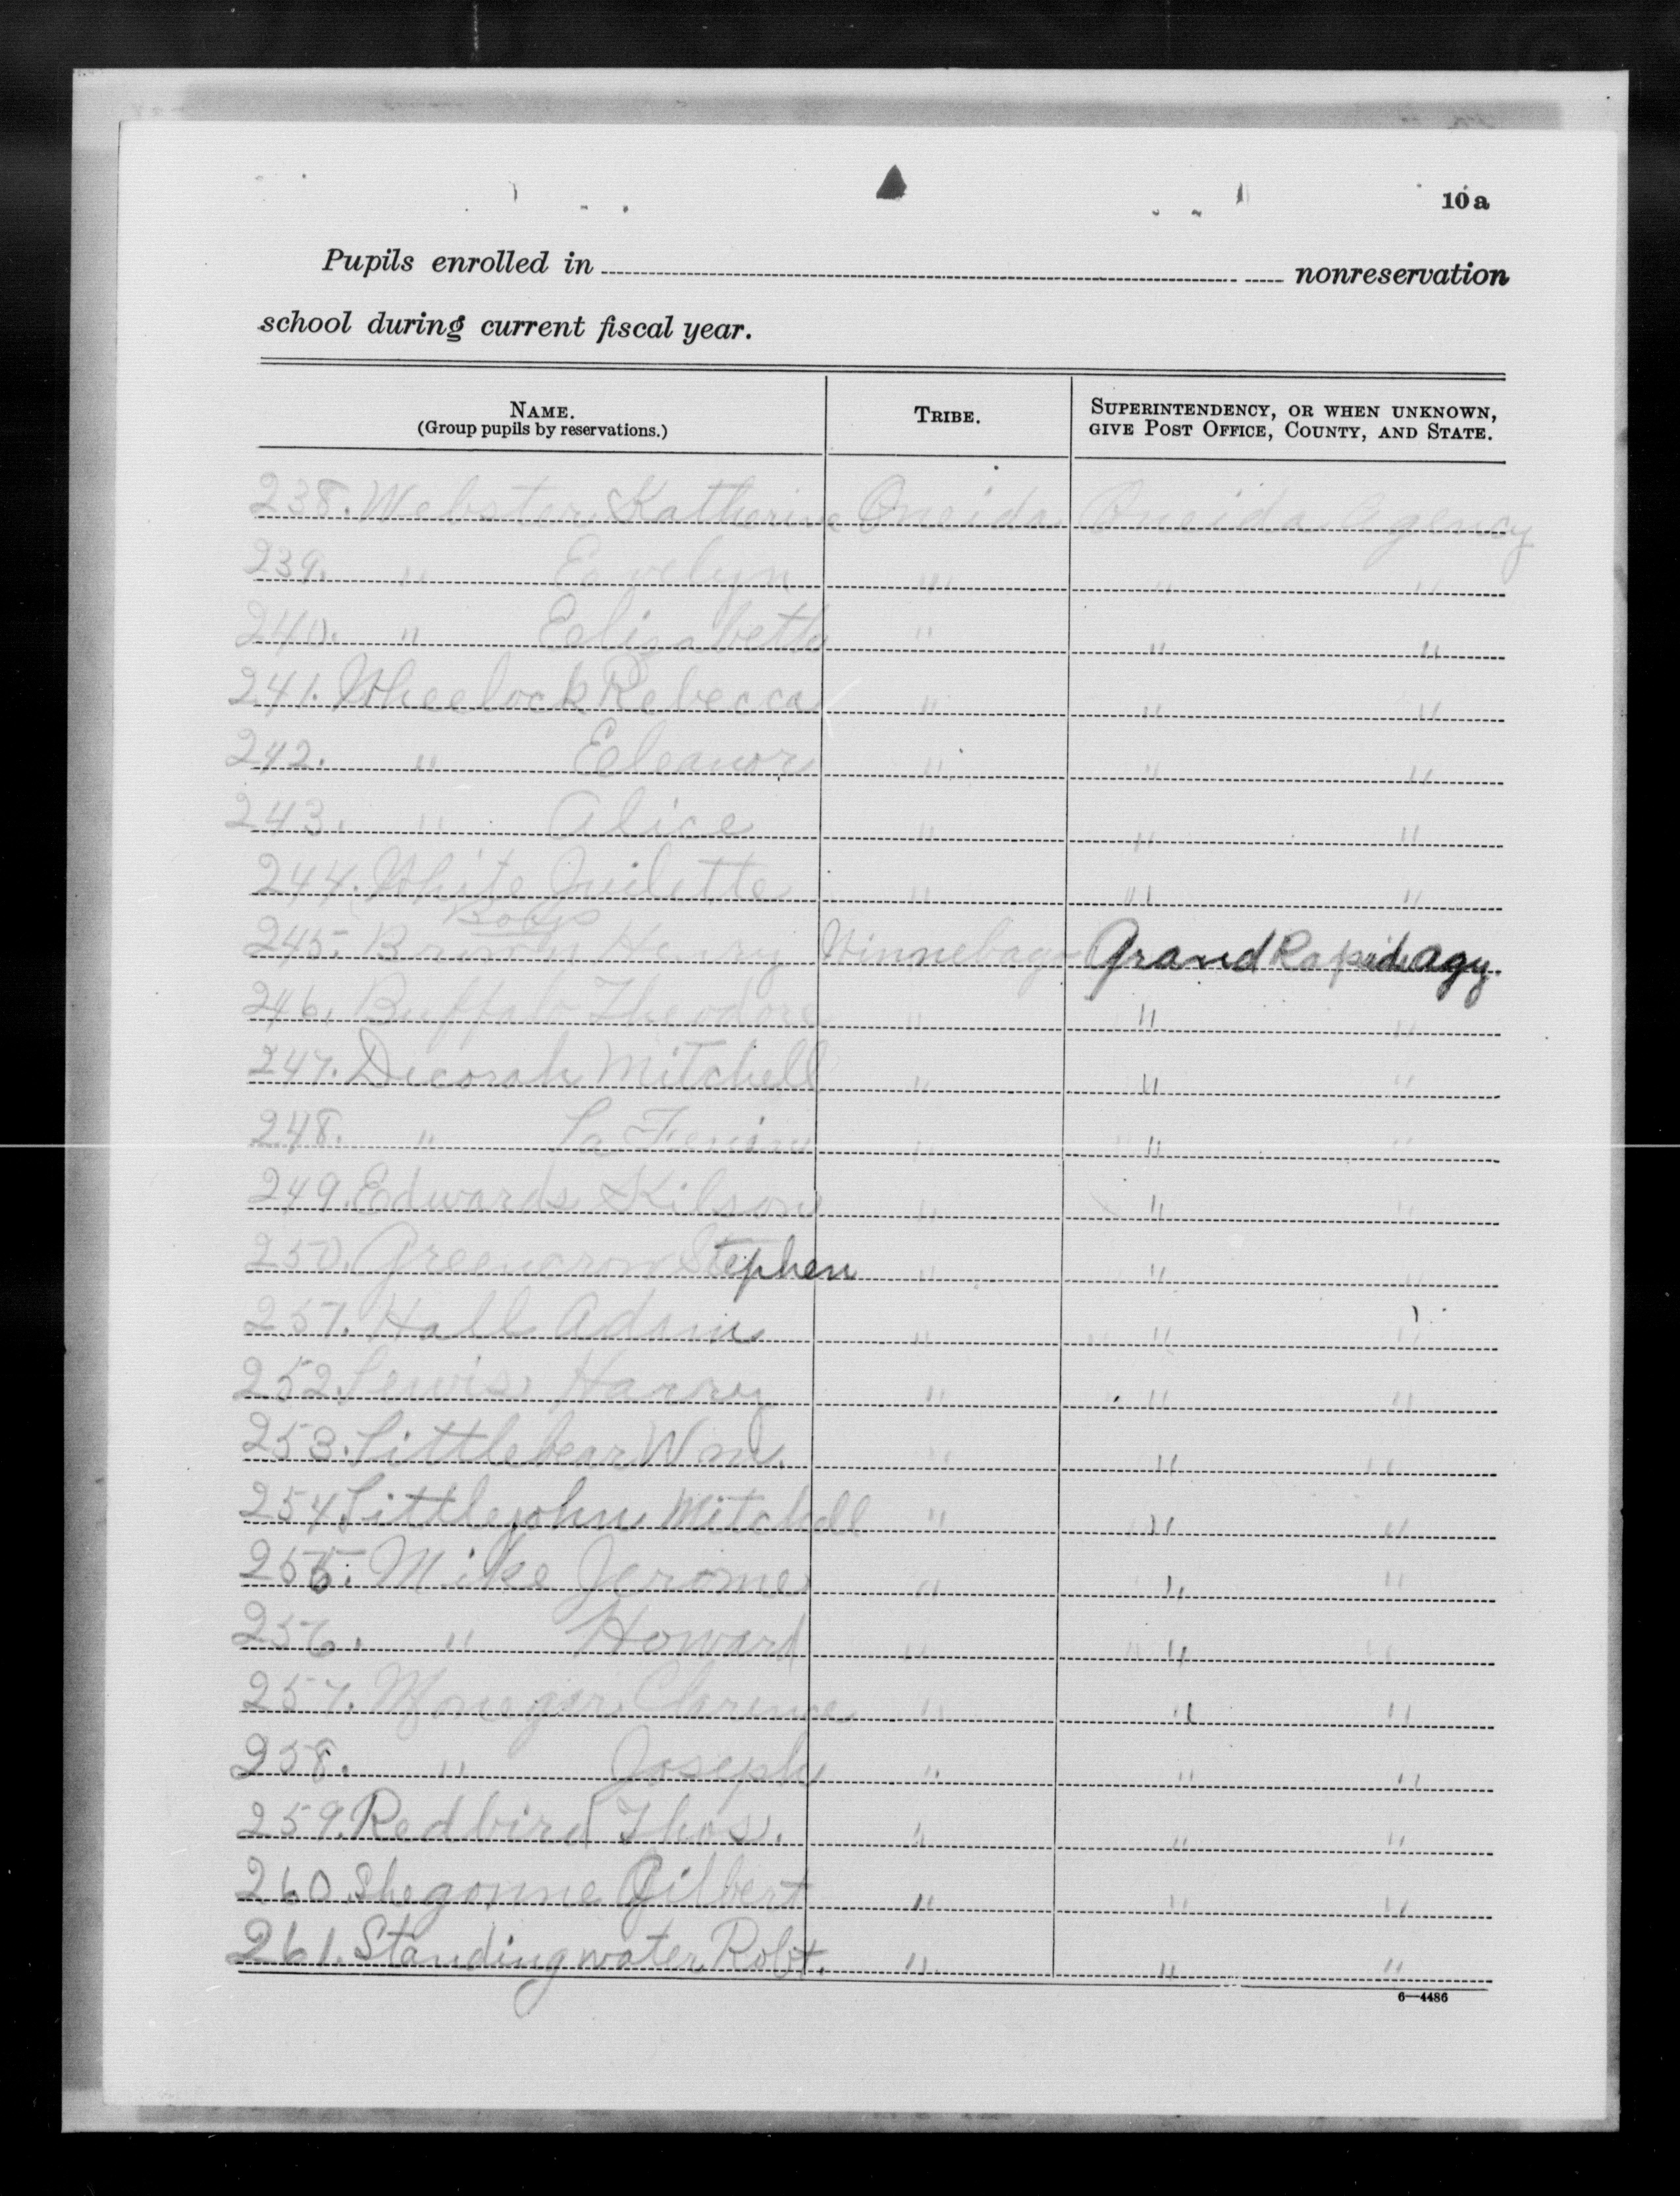 10a
Pupils enrolled in nonreservation
school during current fiscal year.
NAME. TRIBE. SUPERINTENDENCY, OR WHEN UNKNOWN,
(Group pupils by reservations.) GIVE POST OFFICE, COUNTY, AND STATE.
238. Webster Katherine Oneida Oneida Agency
239. " Evelyn " " "
240. " Elizabeth " " "
241. Wheelock Rebecca " " "
242. " Eleanor " " "
243. " Alice " " "
244. White Juilette " " "
Boys
245. Brown Henry Winnebago Grand Rapids Agy.
246. Buffalo Theodore " " "
247. Decorah Mitchell " " "
248. " La " " "
249. Edwards Kilson " " "
250. Greencrow Stephen " " "
251. Hall Adam " " "
252. Lewis Harry " " "
253. Littlebear Wm. " " "
254 Littlejohn Mitchell " " "
255. Mike Jerome " " "
256. " Howard " " "
257. Clarence " " "
258. " Joseph " " "
259. Redbird Thos. " " "
260. Shegonne Gilbert " " "
261. Standingwater Robt. " " "
6—4486